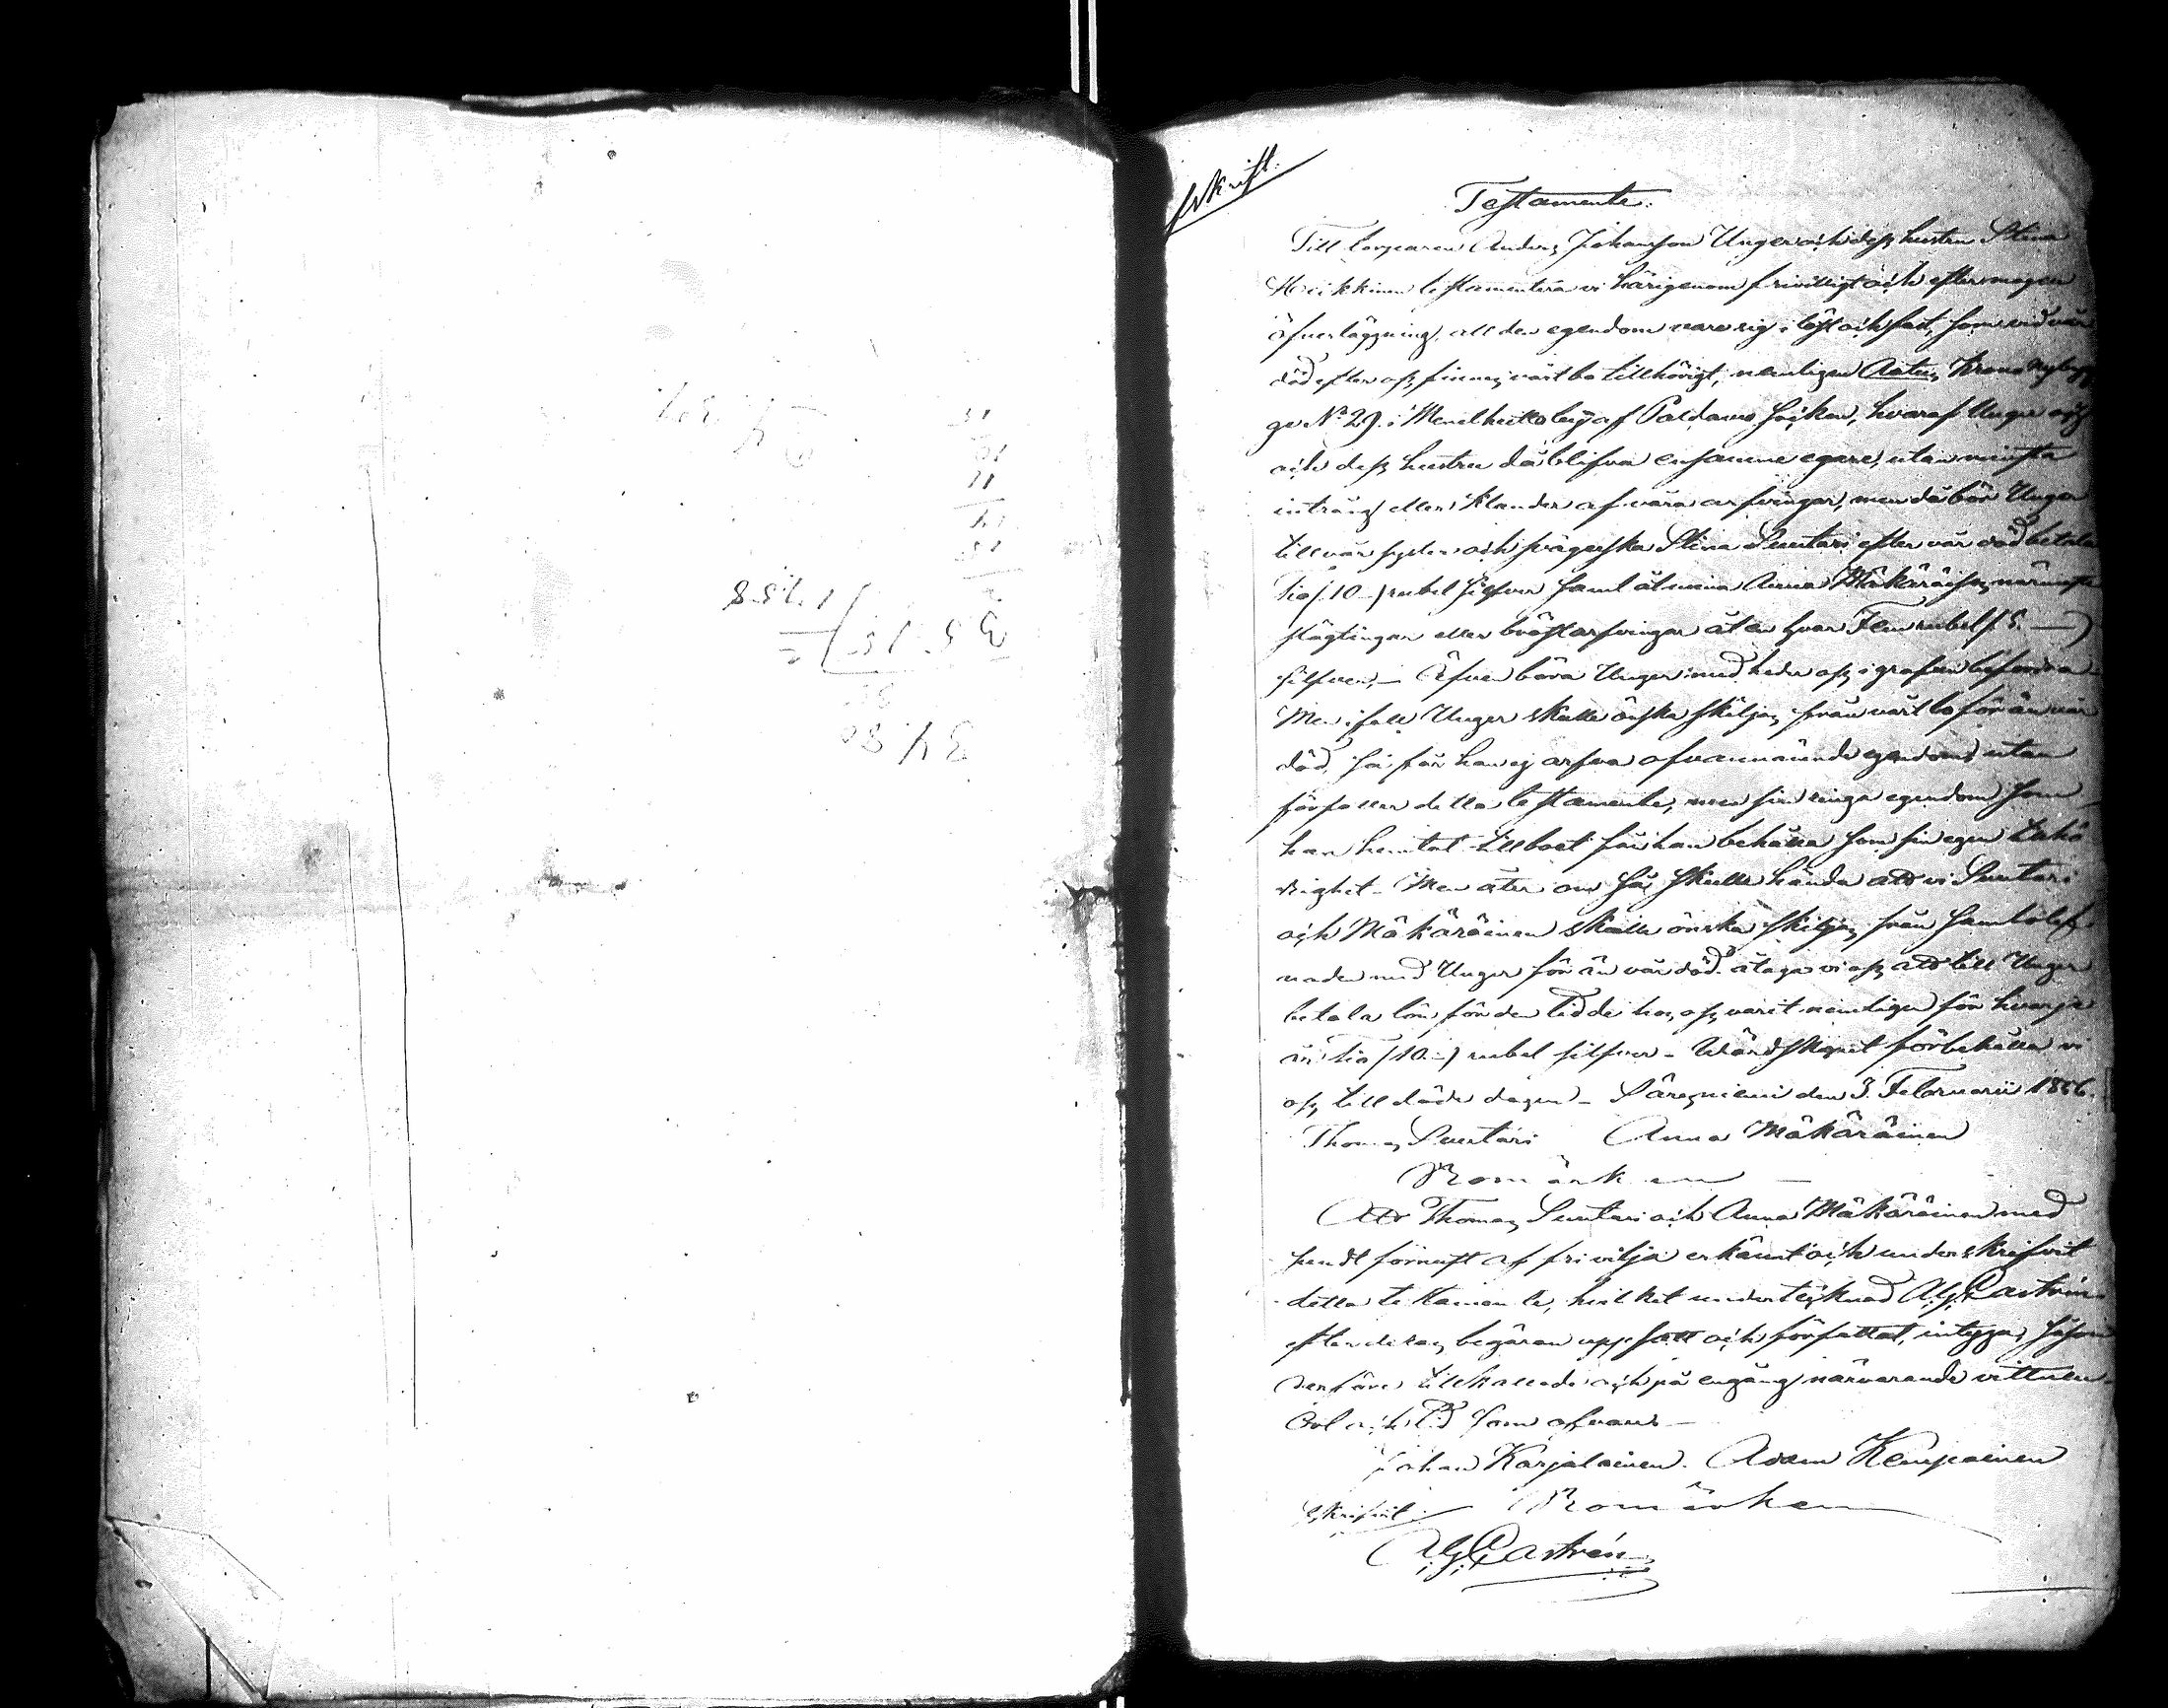 Afskrift.
Testamente.
Till torparen Anders Johansson Unger och dess hustru Stina
Heikkinen testamentera vi härigenom frivilligt och efter mogen
öfverläggning, all den egendom vare sig i löst och fast, som vid vår
död efter oss finnes vårt bo tillhörigt, nemligen Aatus Krono Nybyg-
ge No 29. i Menelhutta by af Paldamo Socken, hvaraf Unger
och dess hustru då blifva ensamme egare, utan minsta
intrång eller klander af våra arfvingar, men då bör Unger
till vår syster och svägerska Stina Suutari efter vår död betala
Tio (10.) rubel Silfver samt åt mina Anna Mäkäräises närmste
slägtingar eller bröstarfvingar åt en hvar Fem rubel (5. —)
silfver. — Äfven böra Unger med heder oss i grafven befordra
Men ifall Unger skulle önska skiljas från vårt bo förän vår
död, så får han ej ärfva ofvannämnde egendom, utan
förfaller detta testamente, men sin ringa egendom som
han hemtat till boet får han behålla som sin egen tillhö
righet. Men åter om så skulle hända att vi Suutari
och Mäkäräinen skulle önska skiljas från
naden med Unger för än vår död åtaga vi oss att till Unger
betala lön för den tid de hos oss varit nemligen för hvarje
år Tio (10.) rubel silfver. — förbehålla vi
oss till döde dagen. — Säresniemi den 3. Februarii 1856.
Thomas Suutari Anna Mäkäräinen
Bomärken —
Att Thomas Suutari och Anna Mäkäräinen med
sundt förnuft af fri vilja erkännt och underskrifvit
detta testamente, hvilket undertecknad A.G. Castrén
efter deras begäran uppsatt och författat, intyga, såsom
derföre tillkallade och på engång närvarande vittnen.
Ort och tid som ofvan —
Johan Karjalainen. Adam Kemppainen
Skrifvit Bomärken
A.G. Castrén